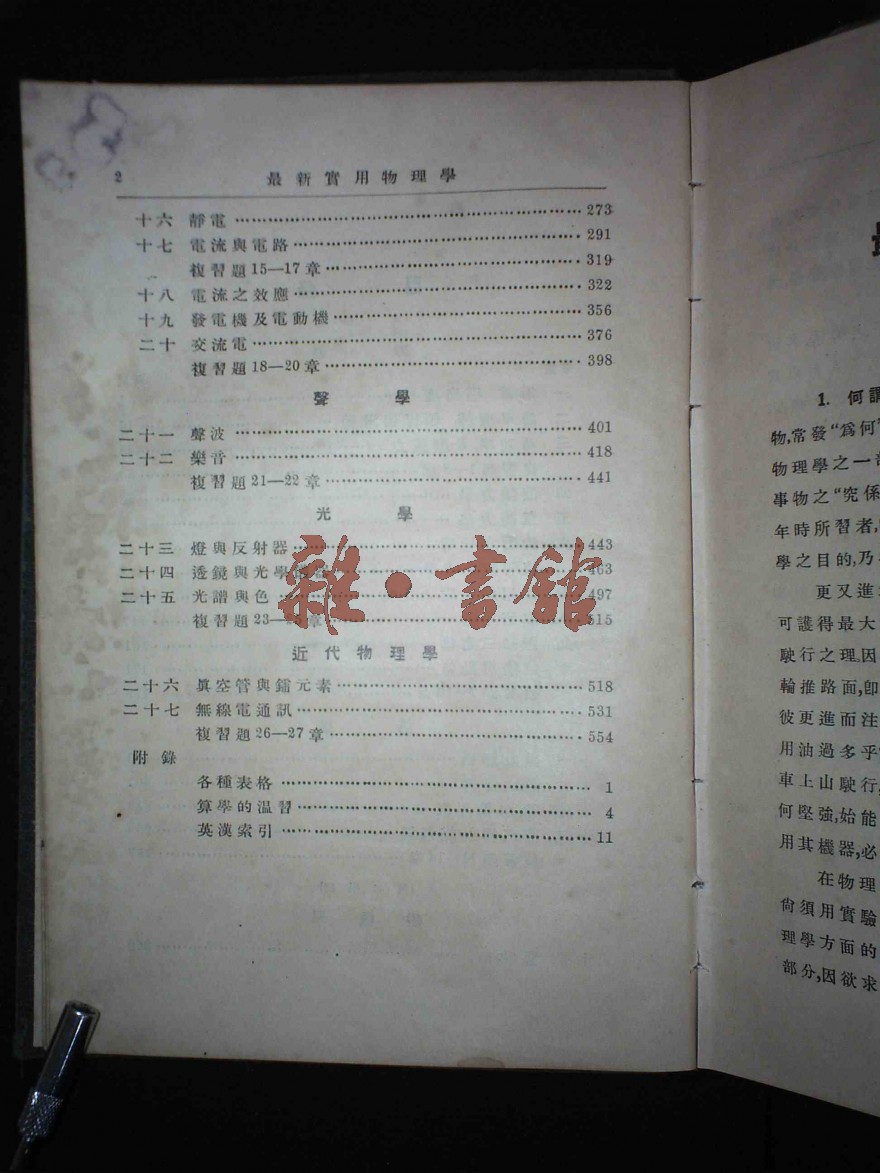 2 最新實用物理學
十六 靜電 273
十七 電流與電路 291
複習題15—17章 319
十八 電流之效應 322
十九 發電機及電動機 356
二十 交流電 376
複習題18—20章 398
聲學
二十一 聲波 401
二十二 樂音 418
複習題21—22章 441
光學
二十三 燈與反射器 443
二十四 透鏡與光學 463
二十五 光譜與色 497
複習題23—25章 515
近代物理學
二十六 眞空管與鐳元素 518
二十七 無線電通訊 531
複習題26—27章 554
附錄
各種表格 1
算學的温習 4
英漢索引 11
雜·書館
1. 何謂
物,常發“爲何”
物理學之一
事物之“究係
年時所習者,
學之目的,乃
更又進
可護得最大
駛行之理.因
輪推路面,卽
彼更進而注
用油過多乎
車上山駛行,
何堅強,始能
用其機器,必
在物理
尙須用實驗
理學方面的
部分,因欲求